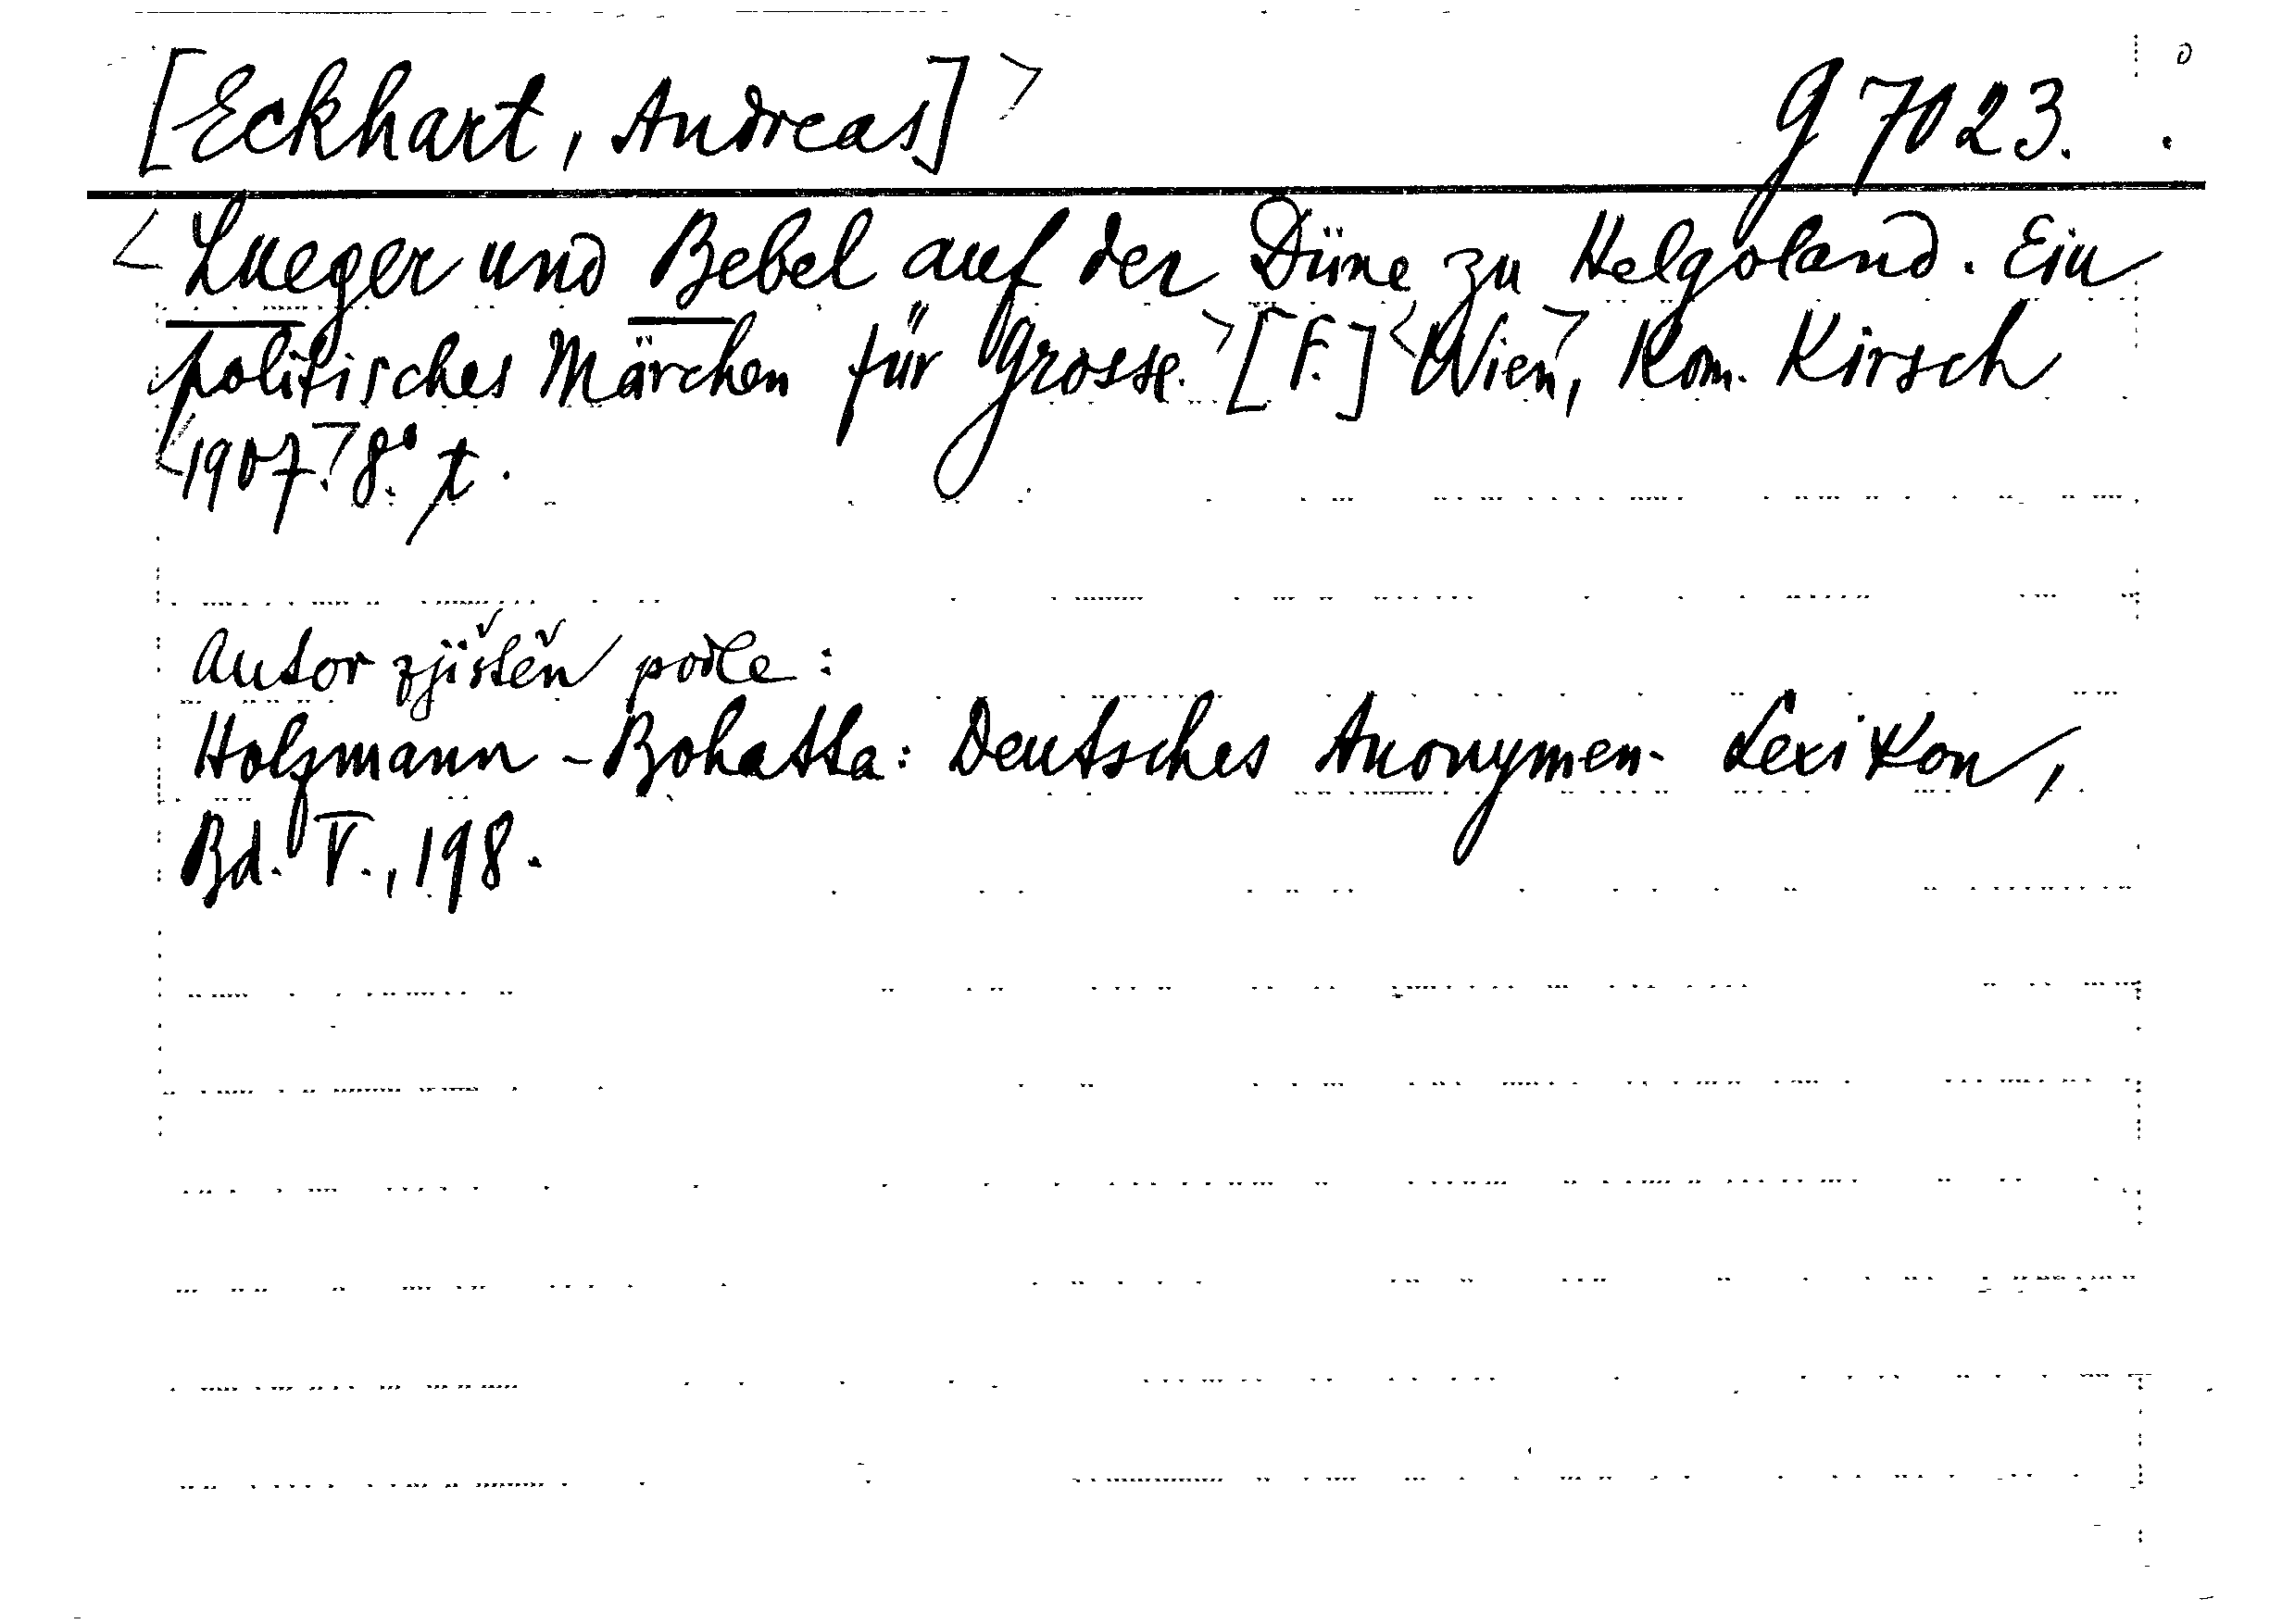 [Eckhart, Andreas]> g 7023.
<Lueger und Bebel auf der Düne zu Helgoland. Ein
politisches Märchen für Grosse.> [F.] <Wien>, Kom. Kirsch
<1907.> 8°. t.
Autor zjištěn podle:
Holzmann-Bohatta: Deutsches Anonymen-Lexikon,
Bd. V., 198.